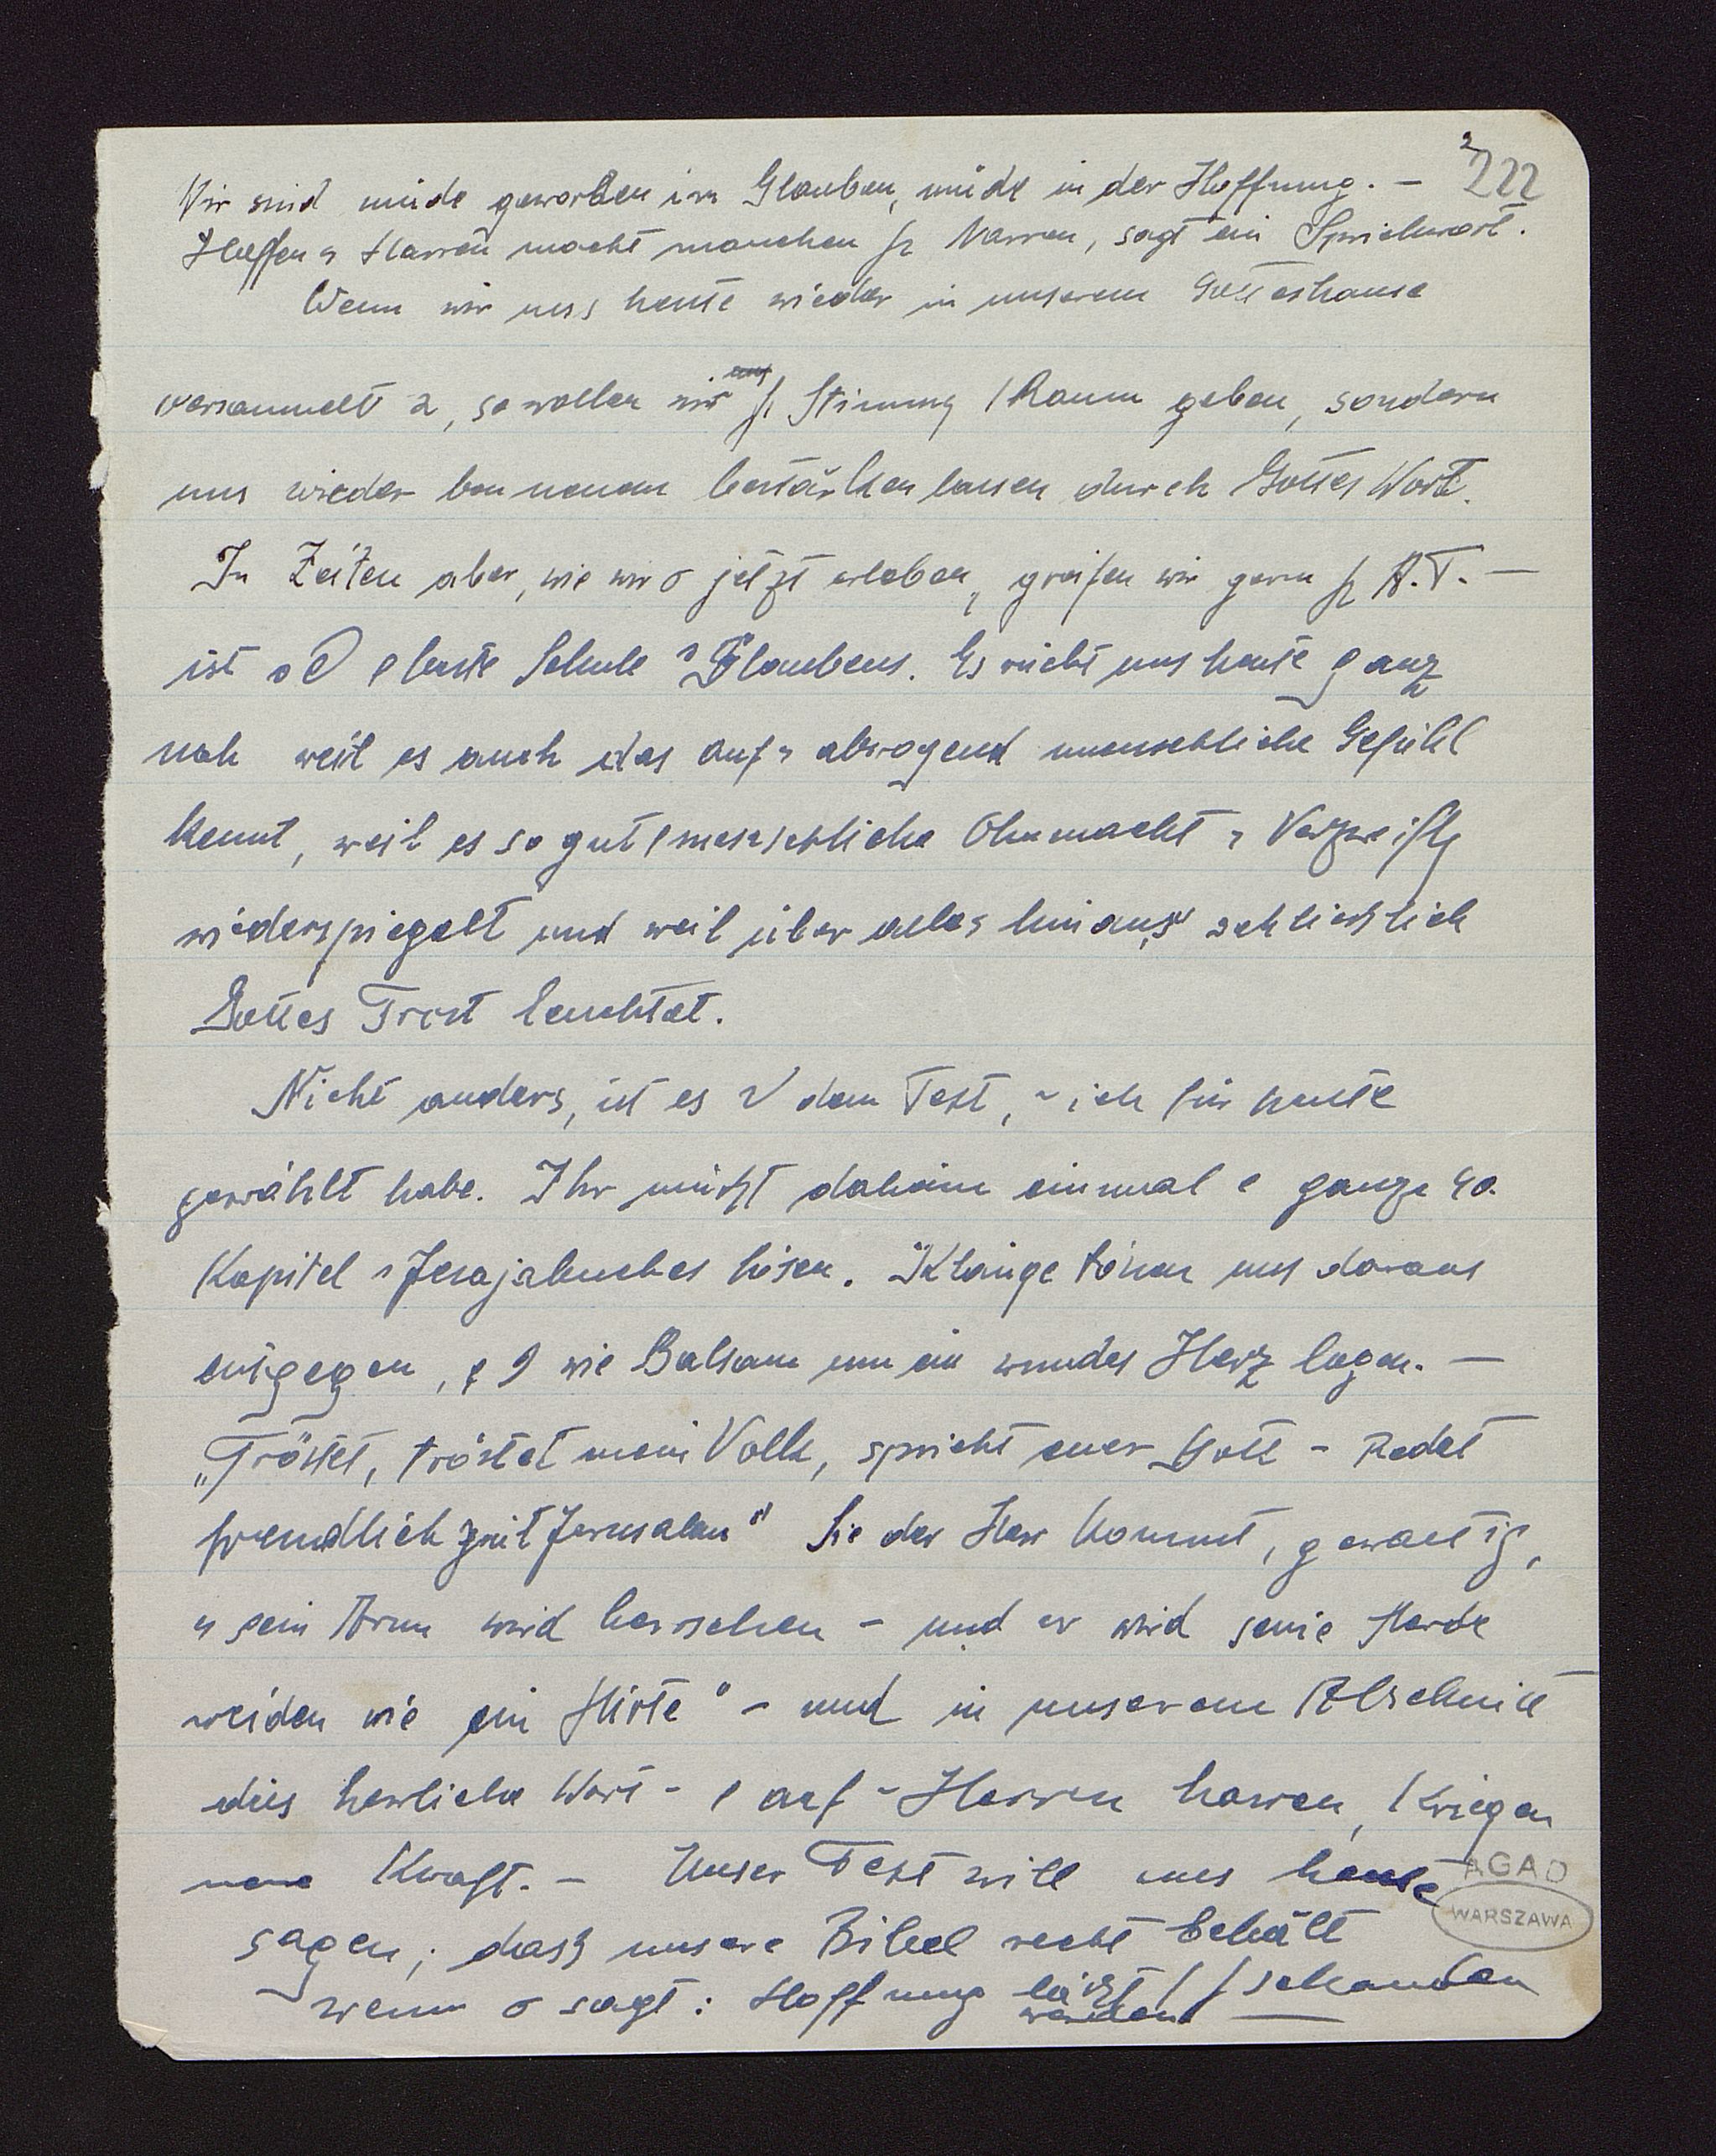 222
Wir sind müde geworden im Glauben, müde in der Hoffnung. –
Hoffen u Harren macht manchen Narren, sagt ein Sprichwort.
Wenn wir uns heute wieder in unserem Gotteshause
versammelt, so wollen wir Stimmung Raum geben, sondern
uns wieder von neuem bestärken lassen durch Gottes Wort.
In Zeiten aber, wie wir jetzt erleben, greifen wir gern A.T. –
ist beste Schule Glaubens. Es rückt uns heute ganz
nah weil es auch das auf u abwogend menschliche Gefühl
kennt, weil es so gut menschliche Ohnmacht u Verzweiflg
wiederspiegelt und weil über alles hinaus schliesslich
Gottes Trost leuchtet.
Nicht anders, ist es dem Text, ich für heute
gewählt habe. Ihr müsst daheim einmal ganze 40.
Kapitel Jesajabuches lesen. Klänge tönen uns daraus
entgegen, wie Balsam um ein wundes Herz legen. –
„Tröstet, tröstet mein Volk, spricht euer Gott – Redet
freundlich mit Jerusalem" der Herr kommt, gewaltig,
u sein Arm wird herrschen – und er wird seine Herde
weiden wie ein Hirte" – und in unserem Abschnitt
dies herrliche Wort – auf Herren harren, kriegen
neue Kraft. – Unser Text will uns heute
sagen, dass unsere Bibel recht behält
wenn sagt: Hoffnung lässt schanden
werden –
AGAD
WARSZAWA